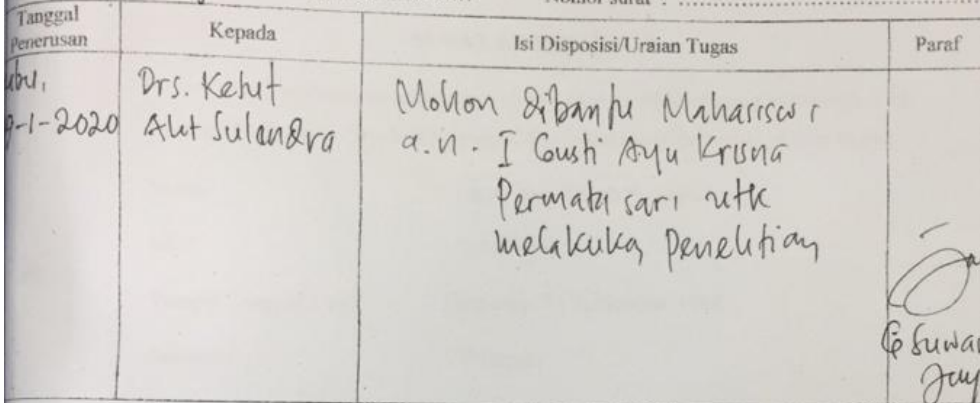 Nomor surat :
Tanggal Penerusan
Kepada
Isi Disposisi/Uraian Tugas
Paraf
9-1-2020
Drs. Ketut
Alit Sulandra
Mohon dibantu Mahasiswi
a.n. I Gusti Ayu Krisna
Permata sari utk
melakuka penelitian
Suwar